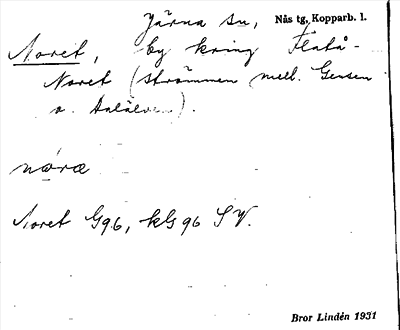 Järna sn, Nås tg, Kopparb. l.
Noret, by kring Flatå-
Noret (strömmen mell. Gensen
o. Dalälven).
næræ
Noret G96, kG 96 SV.
Bror Lindén 1931